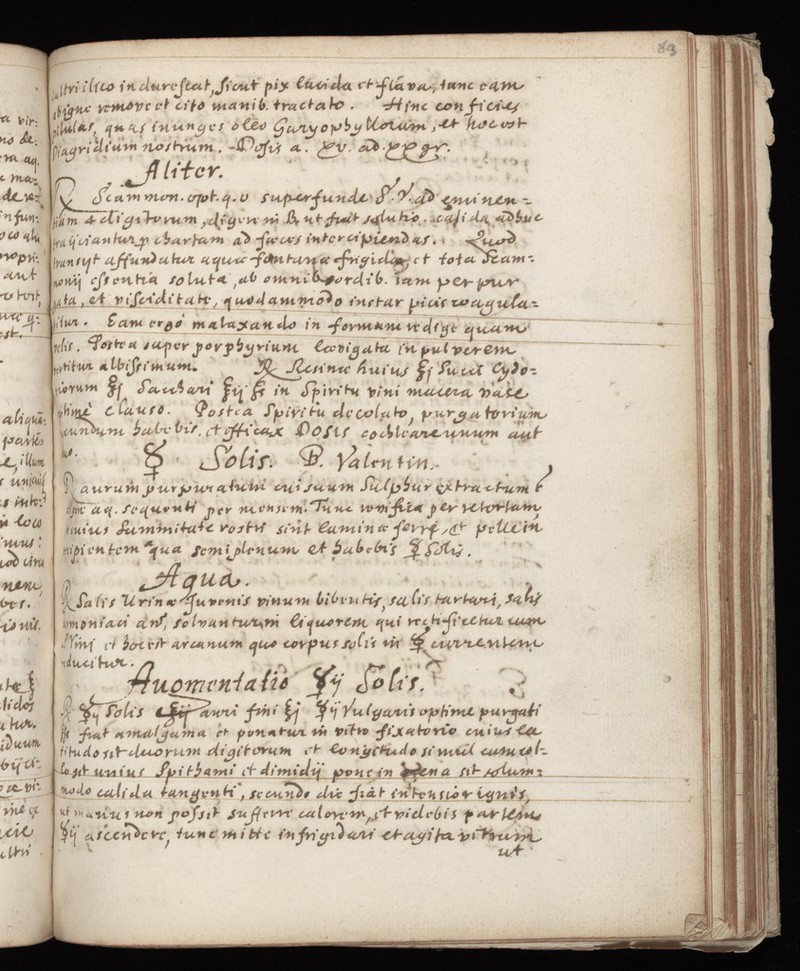 83
cultri ilico indurescat, sicut pix lucida et flava, tunc eam
ab igne removeto et cito manib. tractato. Hinc conficies
pilulas, quas inunges oleo Garyophyllorum, et hoc est
Diagridium nostrum. Dosis a. xv. ad. xx gr.
Aliter.
℞ Scammon. opt. q. v superfunde S. V. ad eminen=
tiam 4 digitorum, digere in B. ut fiat solutio. calida adhuc
traijciantur p chartam ad fæces intercipiendas. Quod
transijt affundatur aquæ fontanæ frigidæ, et tota Scam=
monij essentia soluta, ab omnib. sordib. iam perpur
gata, et visciditate, quodammodo instar picis coagula=
bitur. Eam ergo malaxando in formam redige quam
velis. Postea super porphyrium lævigata in pulverem
vertitur albissimum. ℞ Resinæ huius ℥j Succi Cydo=
niorum ℥j Sacchari ℥ij ß in Spiritu vini macera vase
optime clauso. Postea Spiritu decolato, purgatorium
iucundum habebis. et efficax Dosis cochleare unum aut
duo.
☿ Solis. B. Valentin.
℞ aurum purpuratum cui suum Sulphur extractum e
aq. sequenti per mensem. Tunc vivifica per retortam
cuius Summitate rostri sint laminæ ferri, et pelle in
recipientem aqua semiplenum et habebis ☿ Solis.
Aqua.
℞ Salis Urinæ Juvenis vinum bibentis, salis tartari, salis
armoniaci an, solvantur in liquorem qui rectificetur cum
vini et hoc est arcanum quo corpus solis in ☿ currentem
reducitur.
Auomentatio ☿ij Solis.
℞ ☿ij Solis auri fini ℥j ☿ij Vulgaris optime purgati
fiat amalgama et ponatur in vitro fixatorio cuius la
titudo sit duorum digitorum et longitudo simul cum col=
lo sit unius Spithami et dimidij pone in arena sit solum=
modo calida tangenti, secundo die fiat intensior ignis
ut manus non possit sufferre calorem, et videbis partem
☿ij ascendere, tunc mitte infrigidari et agita vitrum
ut